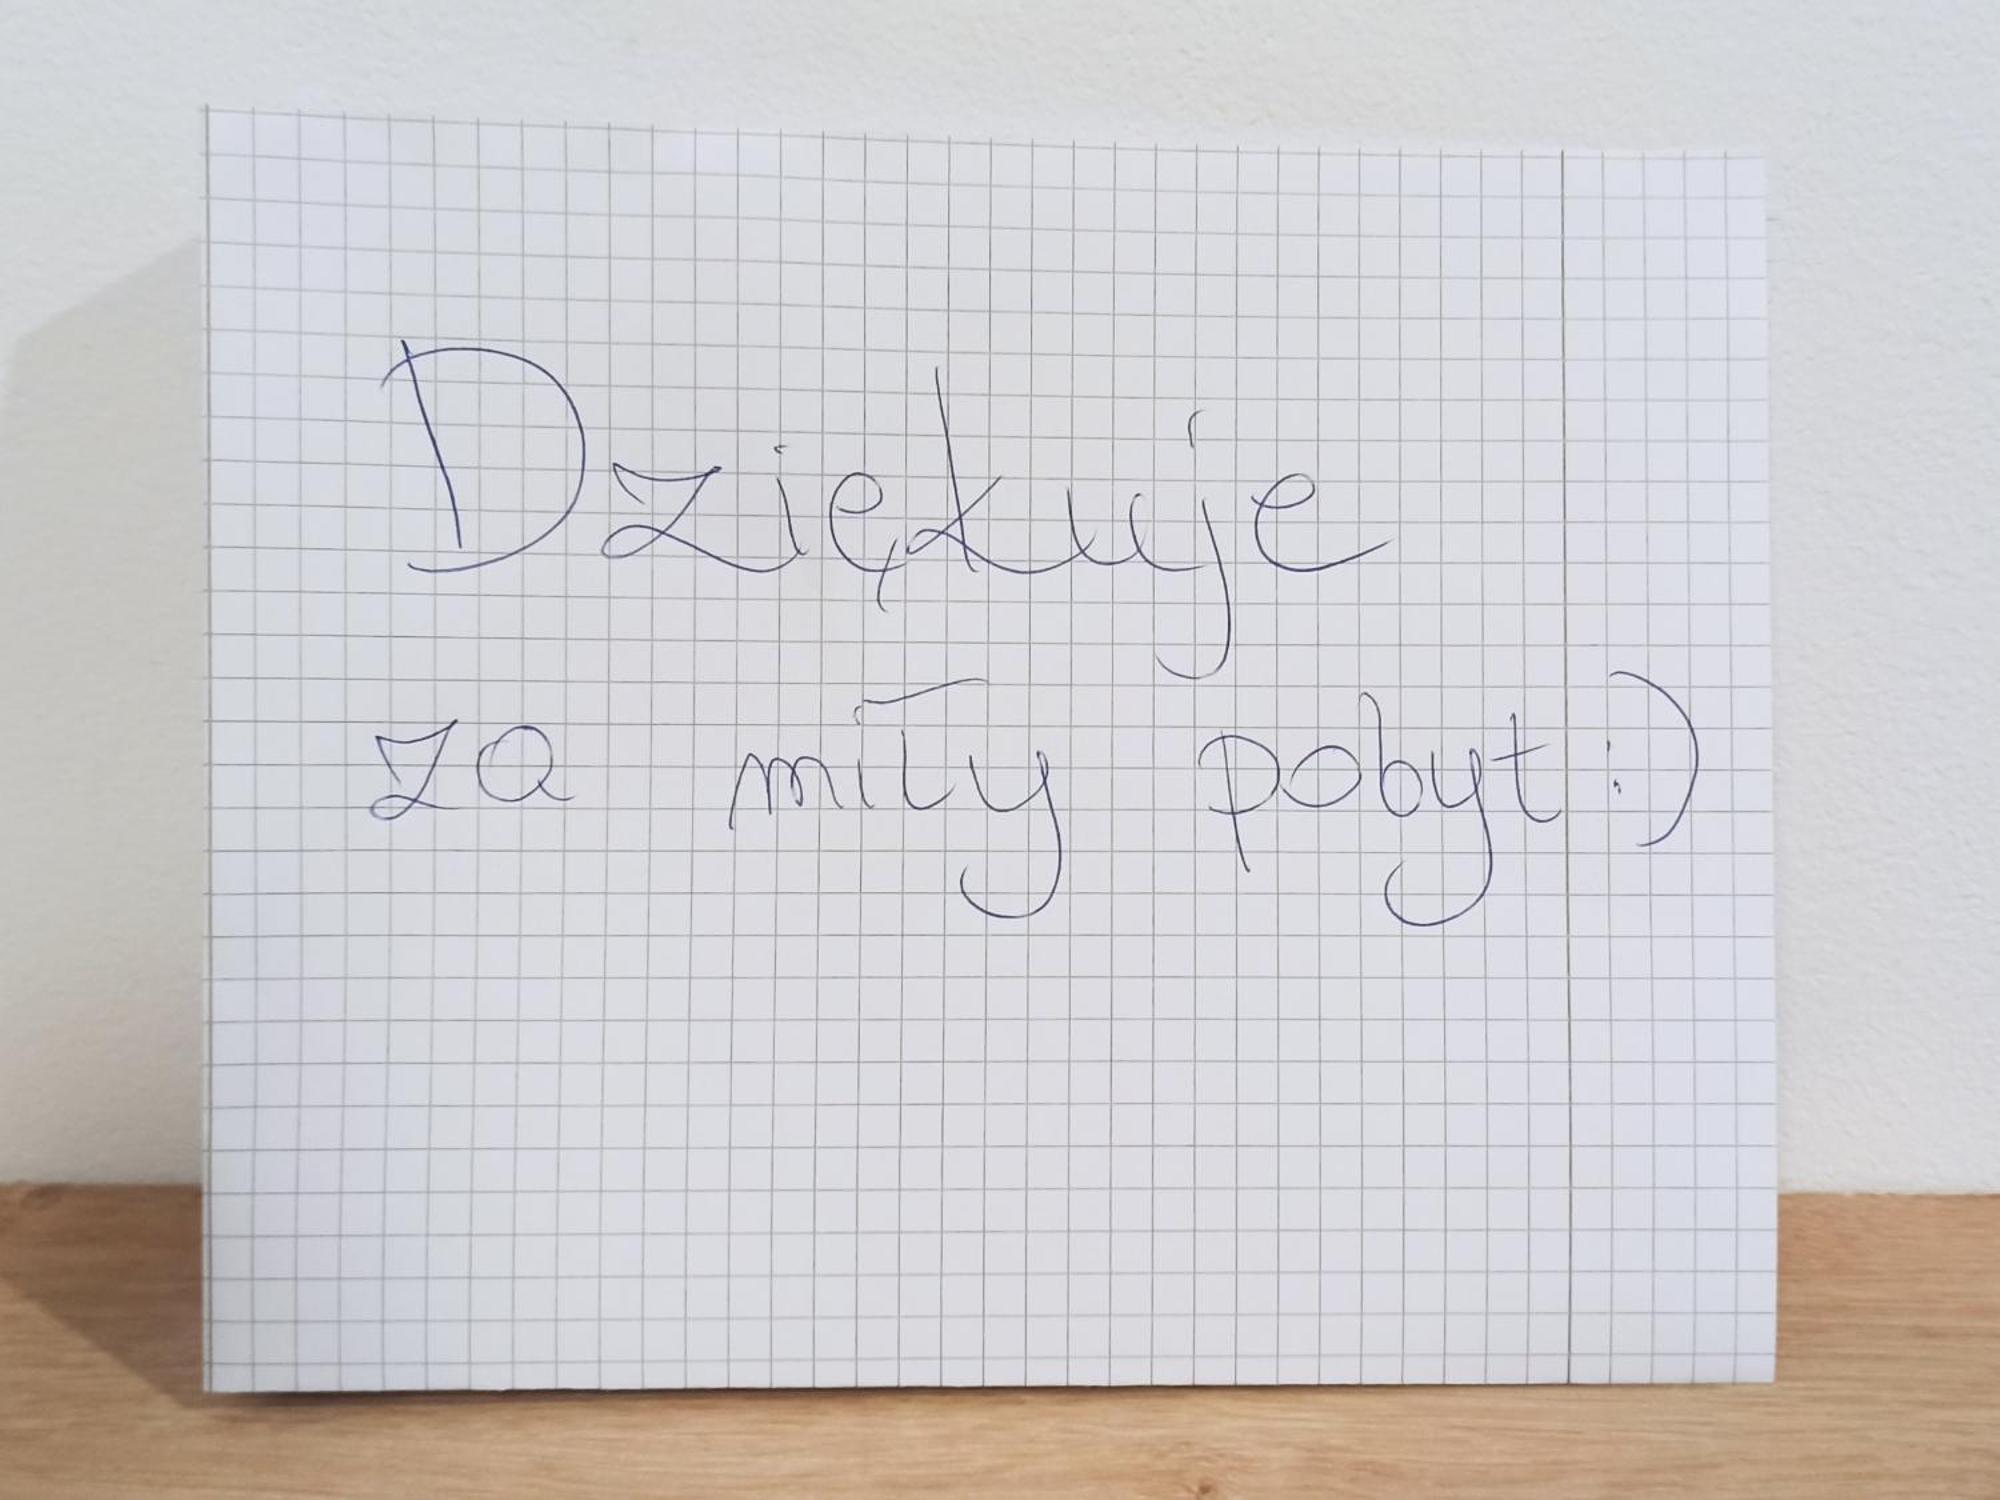 Dziękuje
za miły pobyt :)